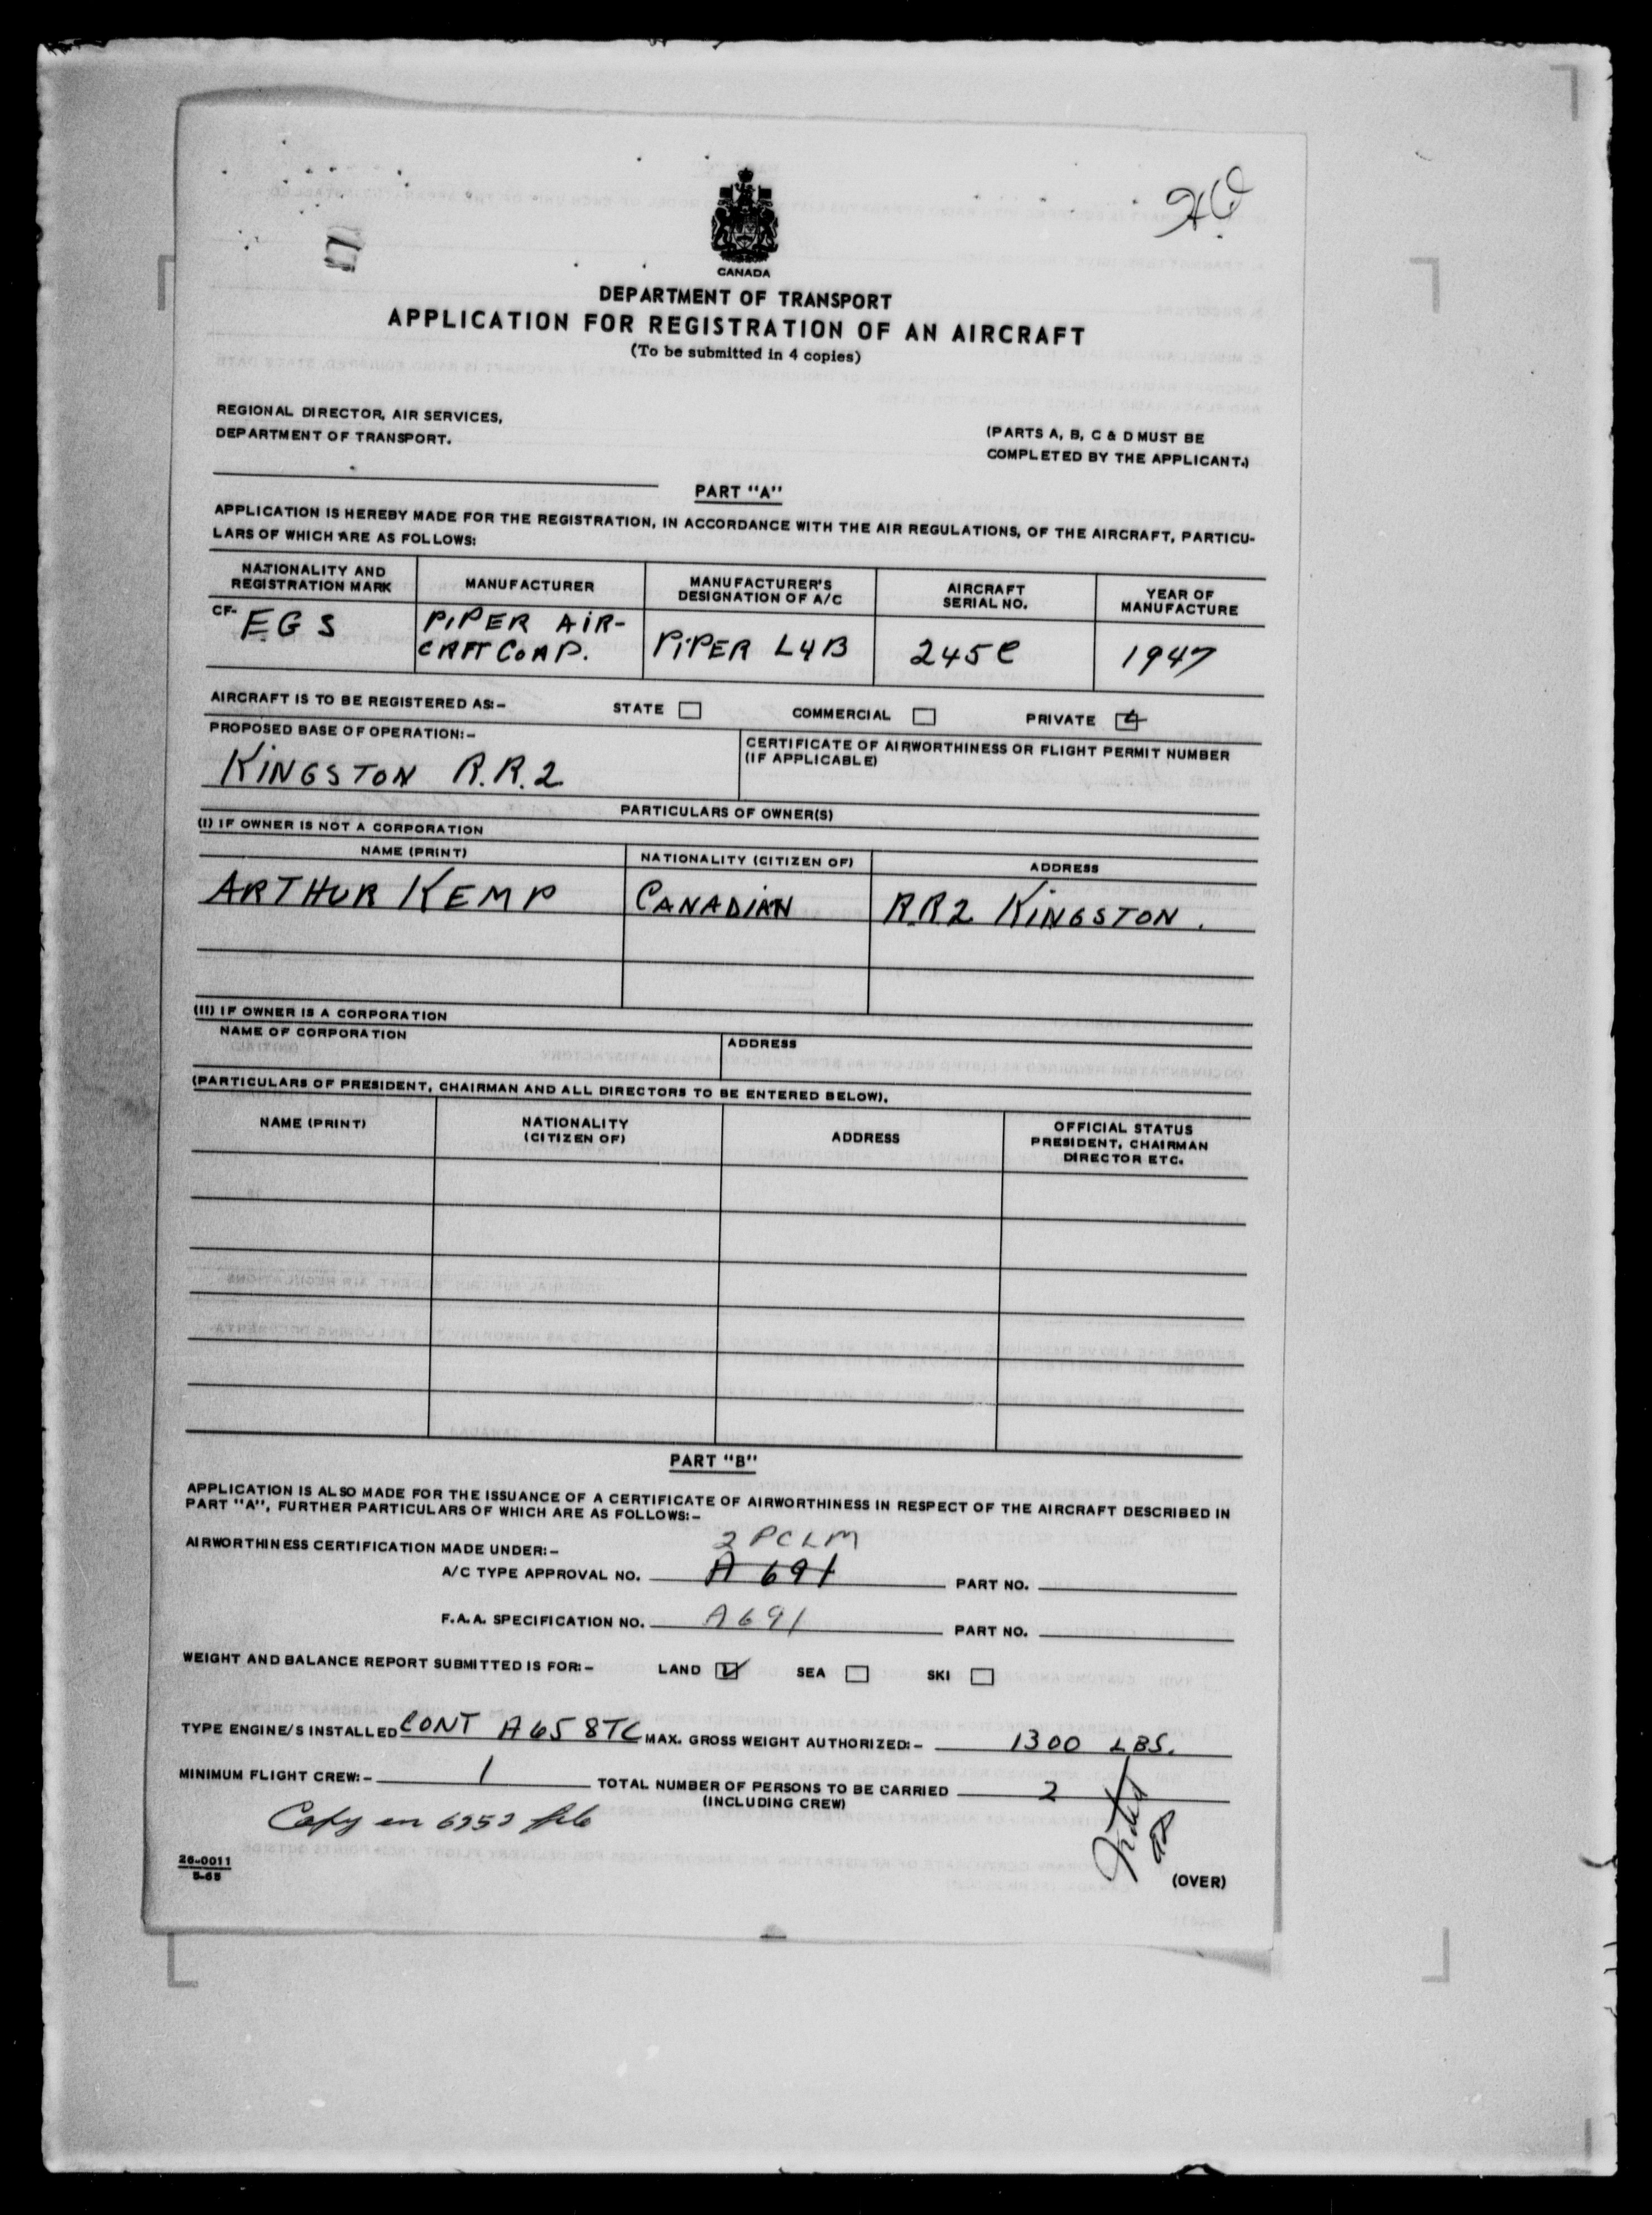 CANADA
DEPARTMENT OF TRANSPORT
APPLICATION FOR REGISTRATION OF AN AIRCRAFT
(To be submitted in 4 copies)
REGIONAL DIRECTOR, AIR SERVICES,
DEPARTMENT OF TRANSPORT.
(PARTS A, B, C & D MUST BE
COMPLETED BY THE APPLICANT.)
PART "A"
APPLICATION IS HEREBY MADE FOR THE REGISTRATION, IN ACCORDANCE WITH THE AIR REGULATIONS, OF THE AIRCRAFT, PARTICU-
LARS OF WHICH ARE AS FOLLOWS:
NATIONALITY AND
REGISTRATION MARK
MANUFACTURER
MANUFACTURER'S
DESIGNATION OF A/C
AIRCRAFT
SERIAL NO.
YEAR OF
MANUFACTURE
CF- EGS
PIPER AIR-
CRFT CORP.
PIPER L4B
245C
1947
AIRCRAFT IS TO BE REGISTERED AS:- STATE COMMERCIAL PRIVATE
PROPOSED BASE OF OPERATION:-
KINGSTON R.R.2
CERTIFICATE OF AIRWORTHINESS OR FLIGHT PERMIT NUMBER
(IF APPLICABLE)
PARTICULARS OF OWNER(S)
(I) IF OWNER IS NOT A CORPORATION
NAME (PRINT) NATIONALITY (CITIZEN OF) ADDRESS
ARTHUR KEMP CANADIAN R.R.2 KINGSTON.
(II) IF OWNER IS A CORPORATION
NAME OF CORPORATION ADDRESS
(PARTICULARS OF PRESIDENT, CHAIRMAN AND ALL DIRECTORS TO BE ENTERED BELOW).
NAME (PRINT)
NATIONALITY
(CITIZEN OF)
ADDRESS
OFFICIAL STATUS
PRESIDENT, CHAIRMAN
DIRECTOR ETC.
PART "B"
APPLICATION IS ALSO MADE FOR THE ISSUANCE OF A CERTIFICATE OF AIRWORTHINESS IN RESPECT OF THE AIRCRAFT DESCRIBED IN
PART "A", FURTHER PARTICULARS OF WHICH ARE AS FOLLOWS:-
AIRWORTHINESS CERTIFICATION MADE UNDER:- 2 PCLM
A/C TYPE APPROVAL NO. A 691 PART NO.
F.A.A. SPECIFICATION NO. A691 PART NO.
WEIGHT AND BALANCE REPORT SUBMITTED IS FOR:- LAND SEA SKI
TYPE ENGINE/S INSTALLED CONT A65 8TC MAX. GROSS WEIGHT AUTHORIZED:- 1300 LBS.
MINIMUM FLIGHT CREW:- 1 TOTAL NUMBER OF PERSONS TO BE CARRIED 2
(INCLUDING CREW)
Copy on file
26-0011
5-65
(OVER)